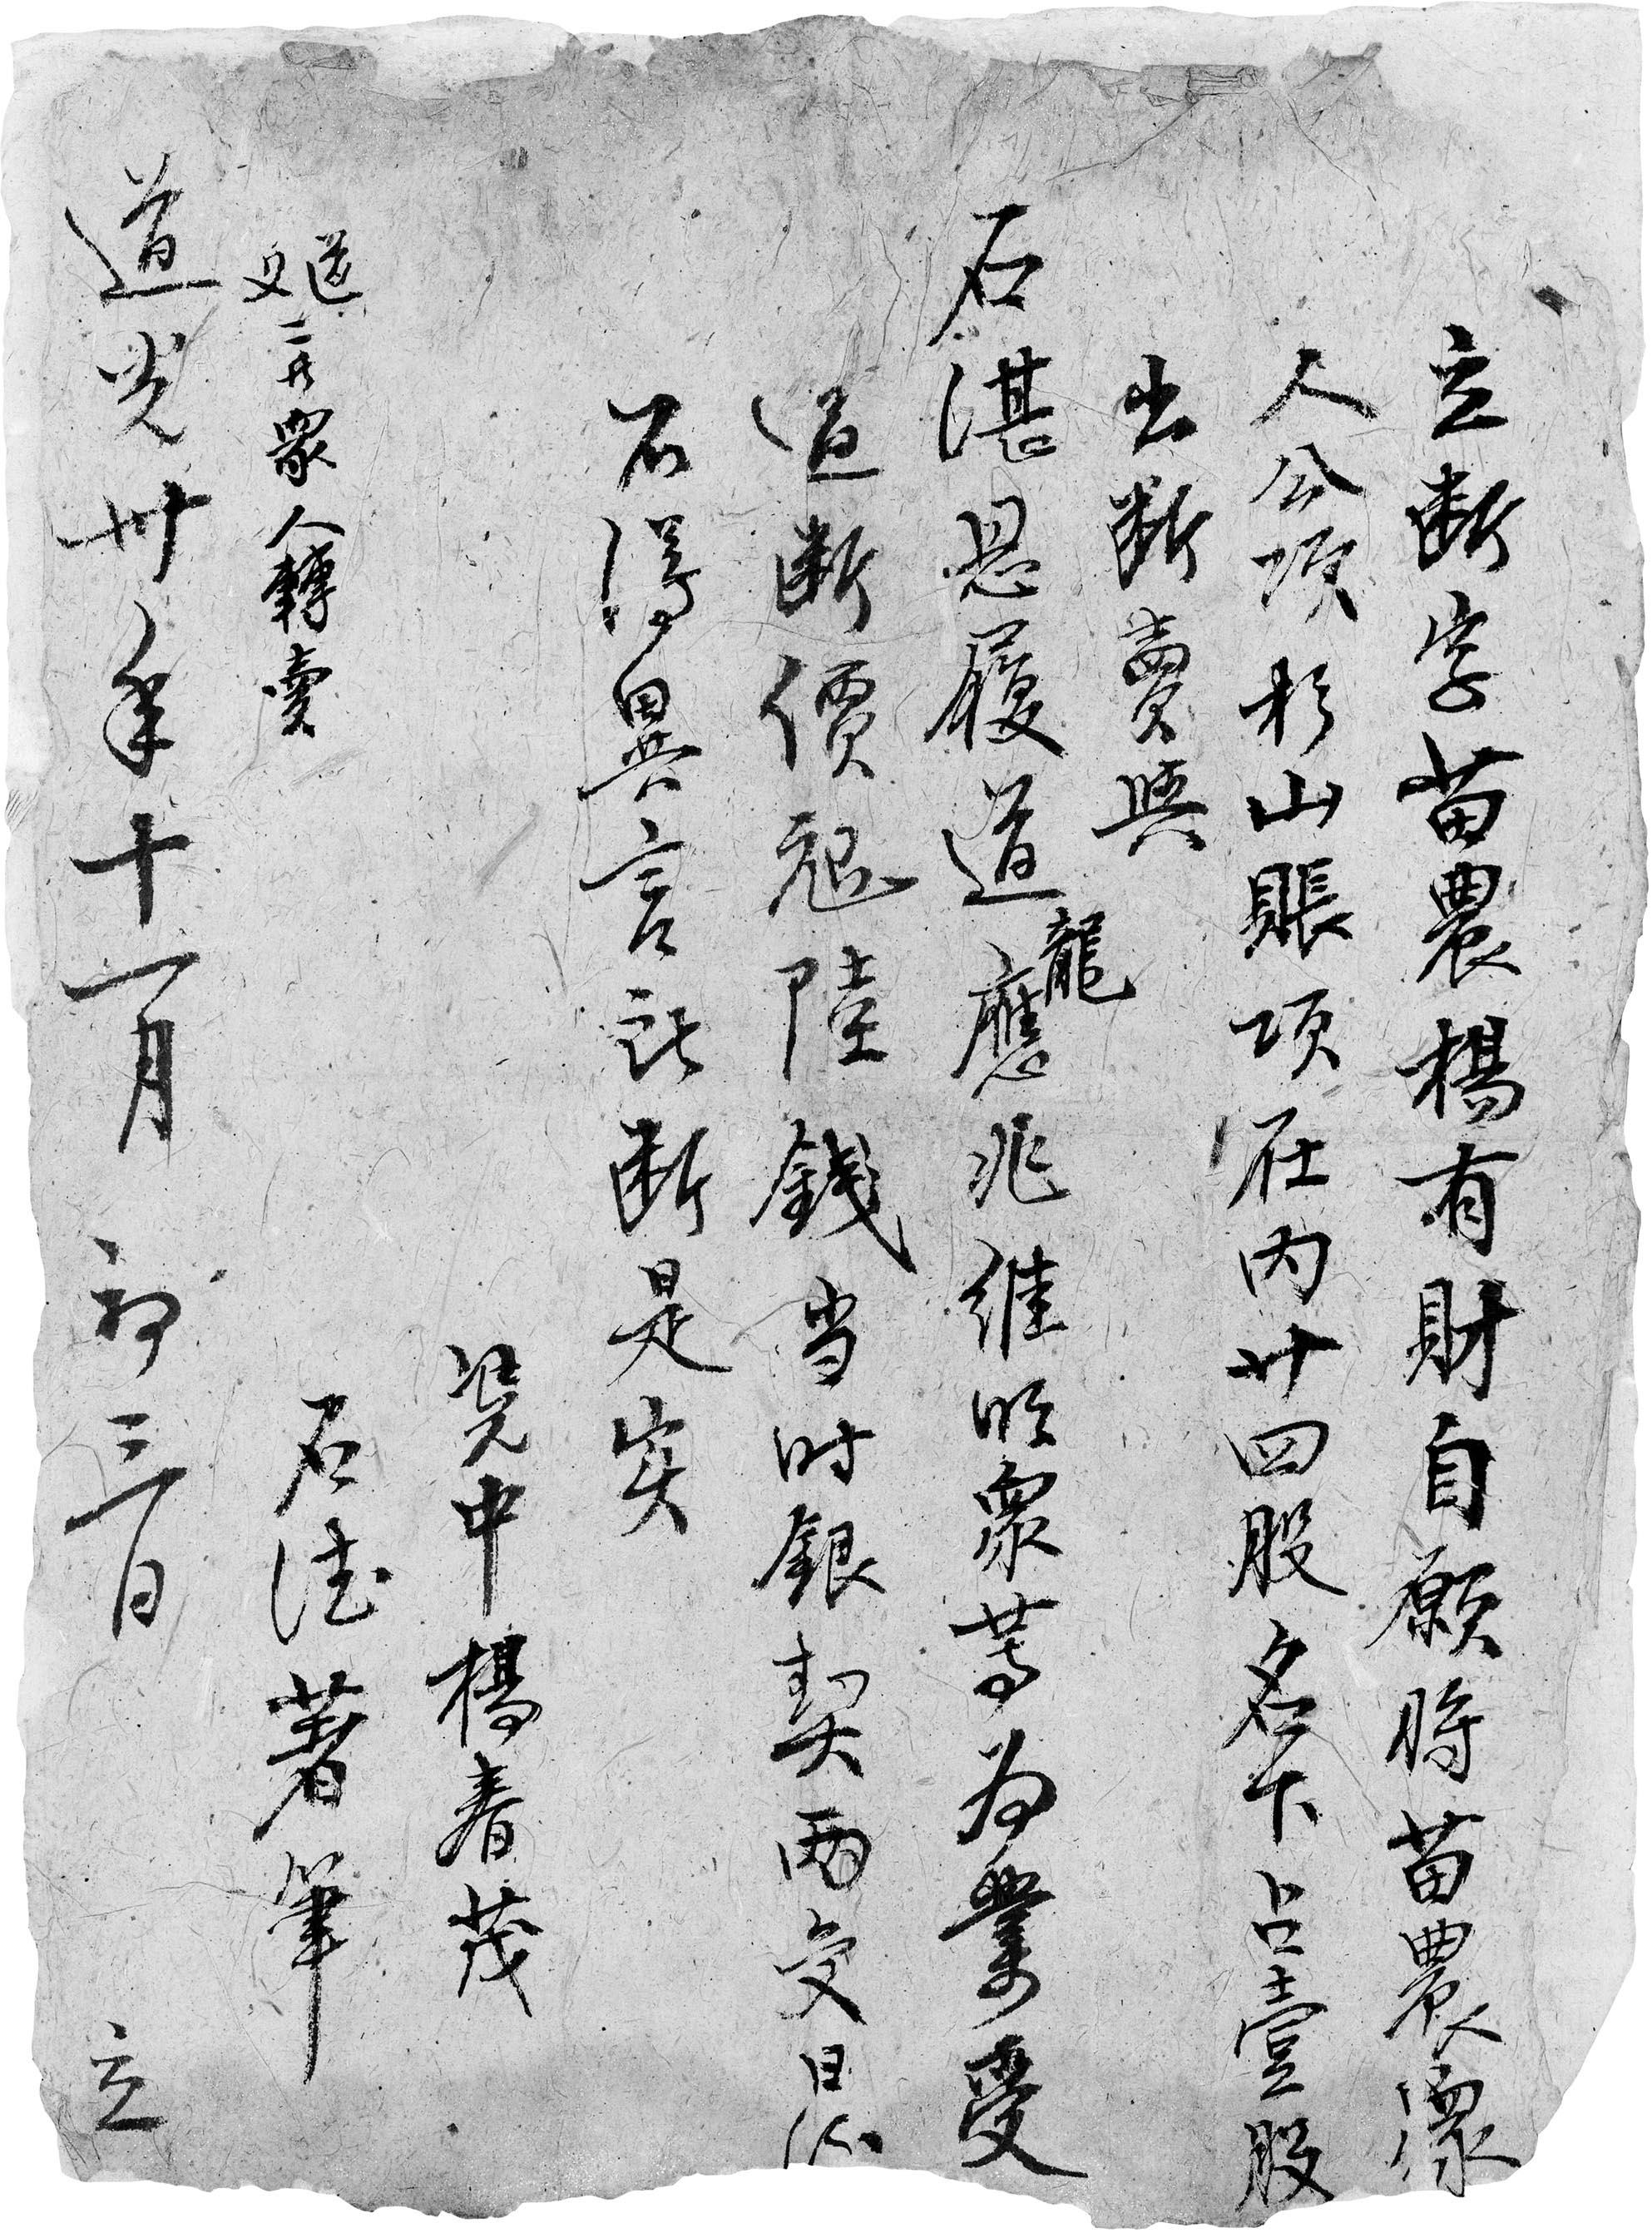 立断字苗農楊有財自願將苗農衆
人公項杉山賬項在内廿四股名下占壹股
出断賣與
石湛恩履道龍應兆維明衆等為業受
過断價銀陸錢当时銀契兩交日後
不得異言立此断是实
凭中楊春茂
石德著筆
衆人轉賣
道光卅年十一月初三日立